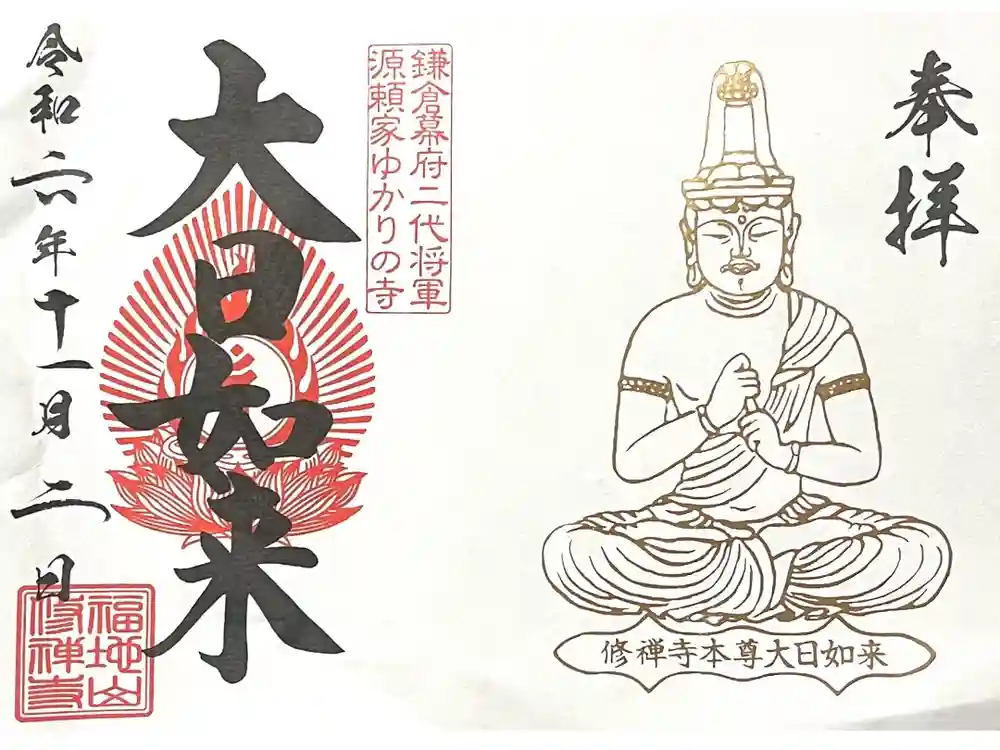 奉拝
修禅寺本尊大日如来
鎌倉幕府二代将軍
源頼家ゆかりの寺
大日如来
令和六年十一月二日
福地山
修禅寺